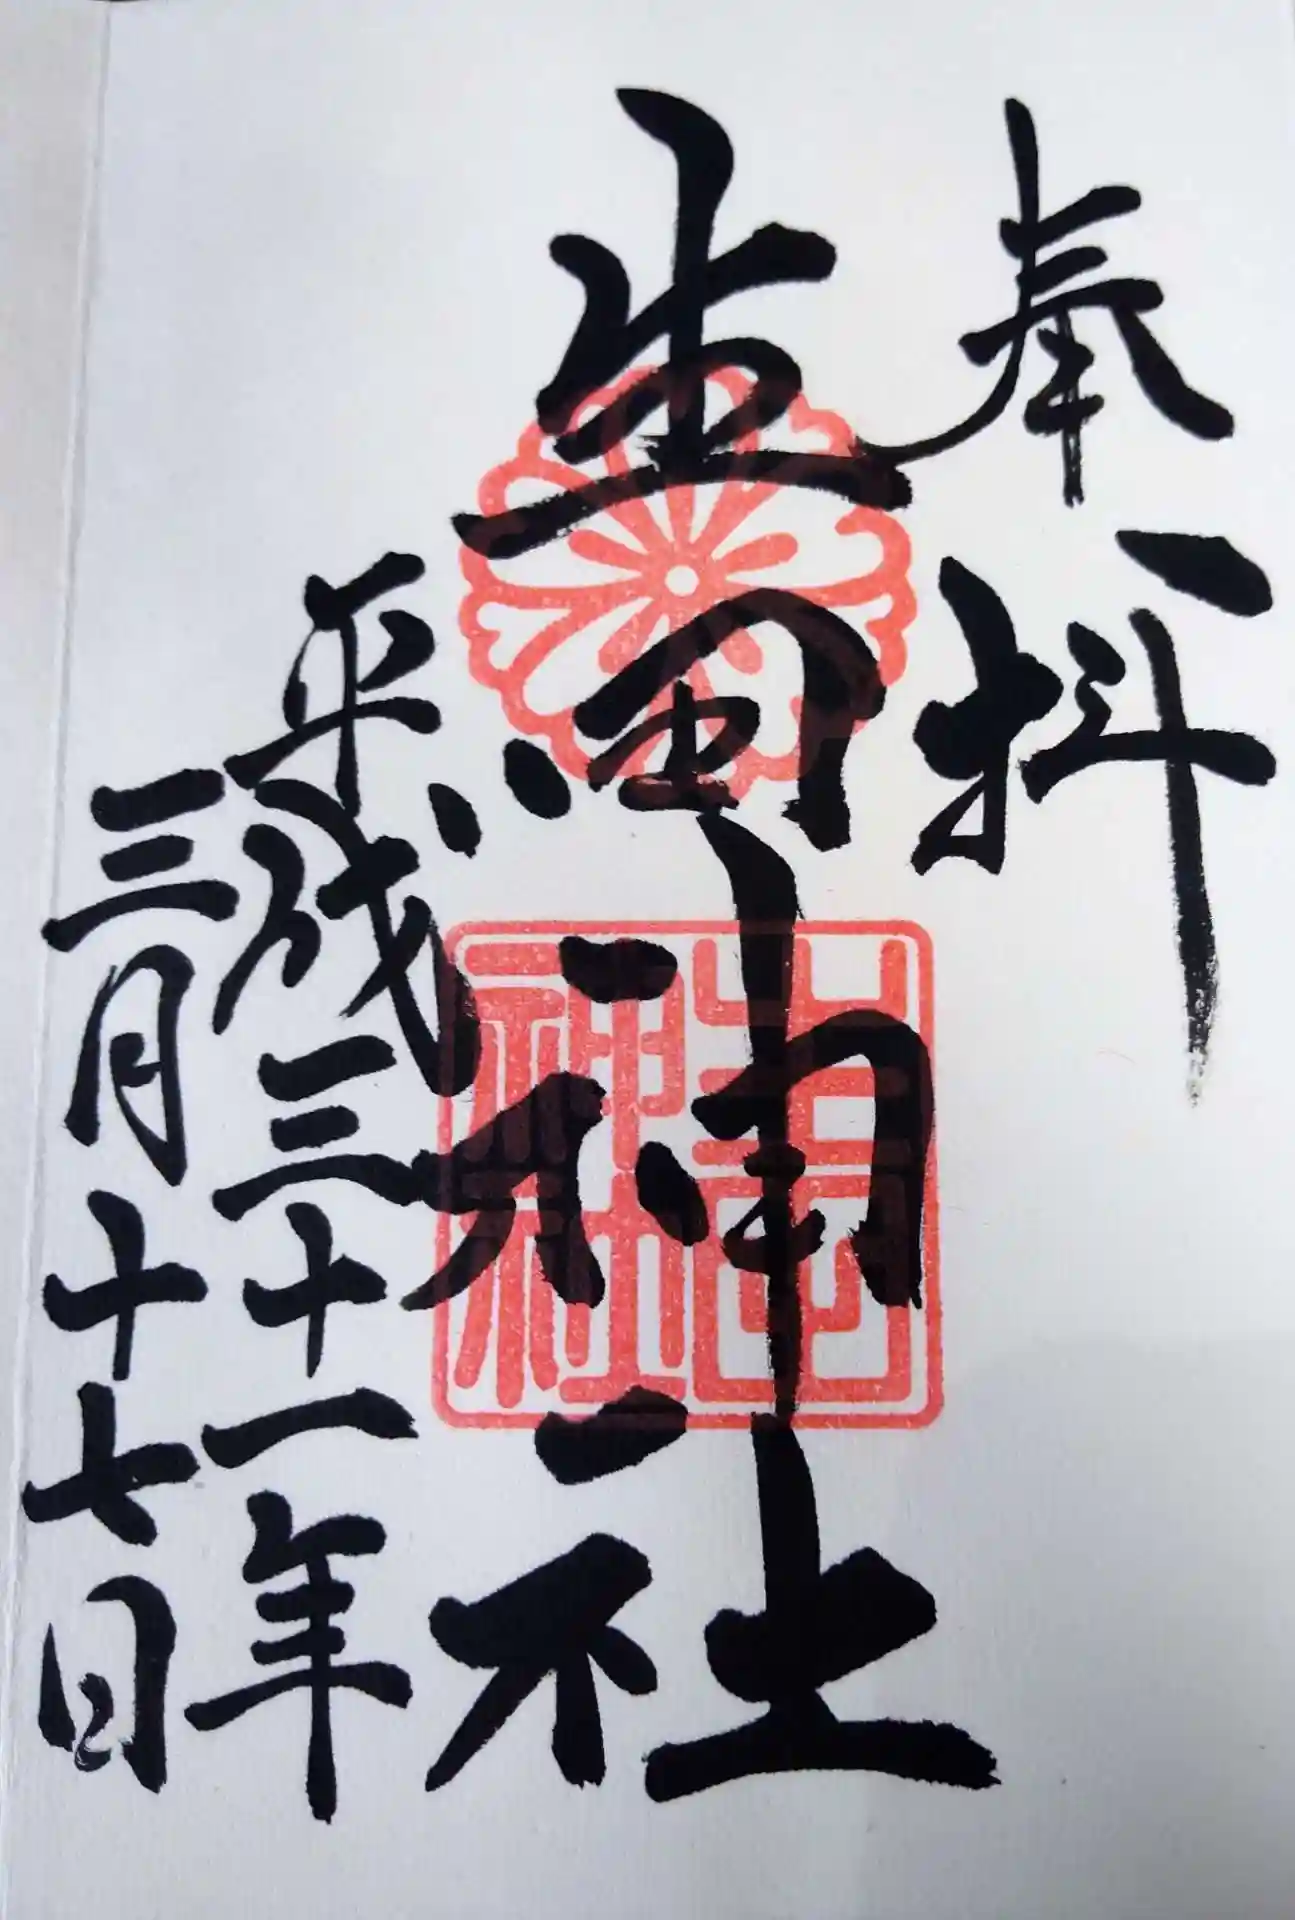 奉拝
生田神社
生田神社
平成三十一年
三月十七日